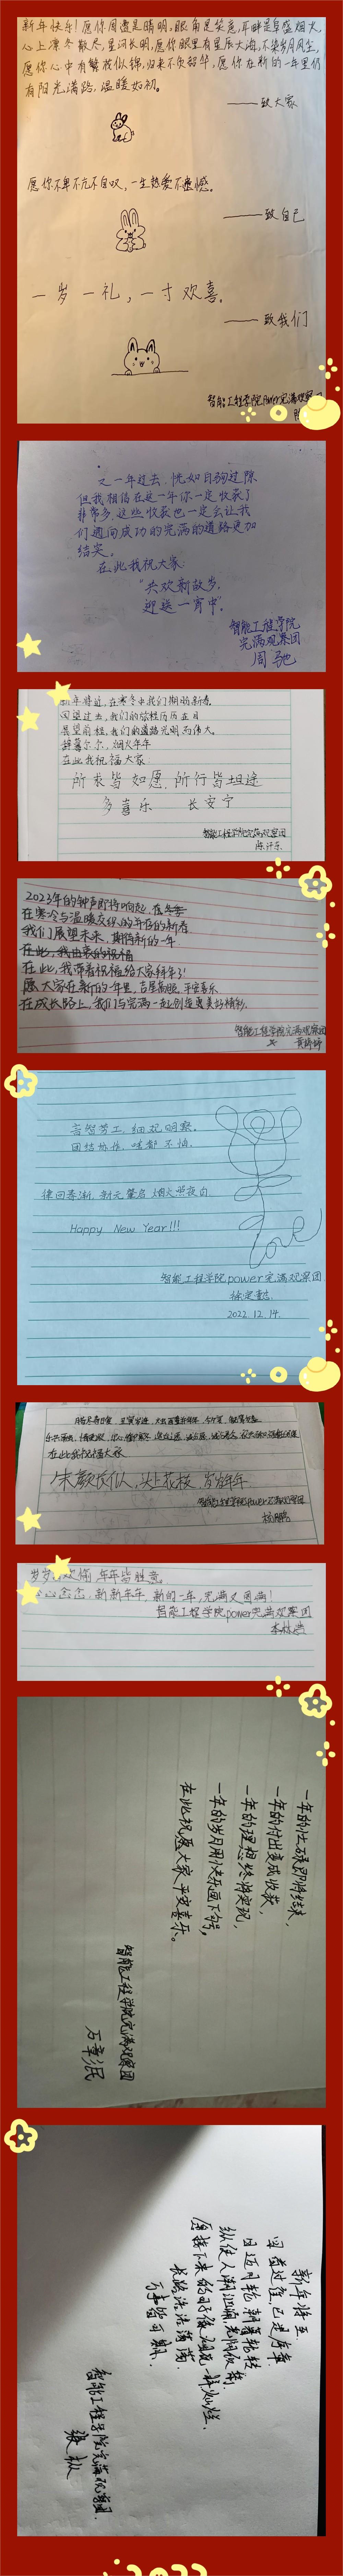 新年快乐！愿你周遭是晴明，眼角是笑意，耳畔是阜盛烟火，
心上凛冬散尽，星河长明，愿你眼里有星辰大海，不染岁月风尘，
愿你心中有繁花似锦，归来不负韶华，愿你在新的一年里仍
有阳光满路，温暖如初。
——致大家
愿你不卑不亢不自叹，一生热爱不遗憾。
——致自己
一岁一礼，一寸欢喜。
——致我们
智能工程学院power完满观察团
又一年过去，恍如白驹过隙
但我相信在这一年你一定收获了
非常多，这些收获也一定会让我
们通向成功的完满的道路更加
结实。
在此我祝大家：
“共欢新故岁，
迎送一宵中”。
智能工程学院
完满观察团
周驰
新年将近，在寒冬中我们期盼新春。
回望过去，我们的旅程历历在目
展望前程，我们的道路光明而伟大。
朝暮尔尔，烟火年年
在此我祝福大家：
所求皆如愿，所行皆坦途
多喜乐 长安宁
智能工程学院完满观察团
2023年的钟声即将响起，在冬季
在寒冷与温暖交织的年份的新春
我们展望未来，期待新的一年
在此，我由衷的祝福
在此，我带着祝福给大家拜年了！
愿大家在新的一年里，吉星高照，平安喜乐
在成长路上，我们与完满一起创造更美好精彩.
智能工程学院完满观察团
黄婷婷
言智芳工，细观明察。
团结协作，啥都不怕。
律回春渐，新元肇启 烟火照夜白
Happy New Year!!!
love
智能工程学院power完满观察团
2022.12.14.
在此我祝福大家
朱颜长似，头上花枝，岁岁年年
智能工程学院power完满观察团
岁岁 欢愉 年年皆胜意
心心念念，新新年年，新的一年，完满又圆满！
智能工程学院power完满观察团
李林浩
一年的忙碌即将结束，
一年的付出变成收获，
一年的理想终将实现，
一年的岁月用快乐画下句号。
在此祝愿大家平安喜乐。
智能工程学院完满观察团
石章民
新年将至.
回首过往，已是序章
日迈月征，朝暮轮转
纵使人潮汹涌
愿接下来的日子像烟花一样灿烂.
长路浩浩荡荡，
万事皆可期.
智能工程学院完满观察团.